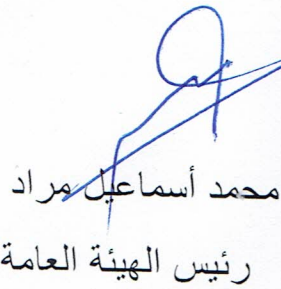 محمد أسماعيل مراد
رئيس الهيئة العامة